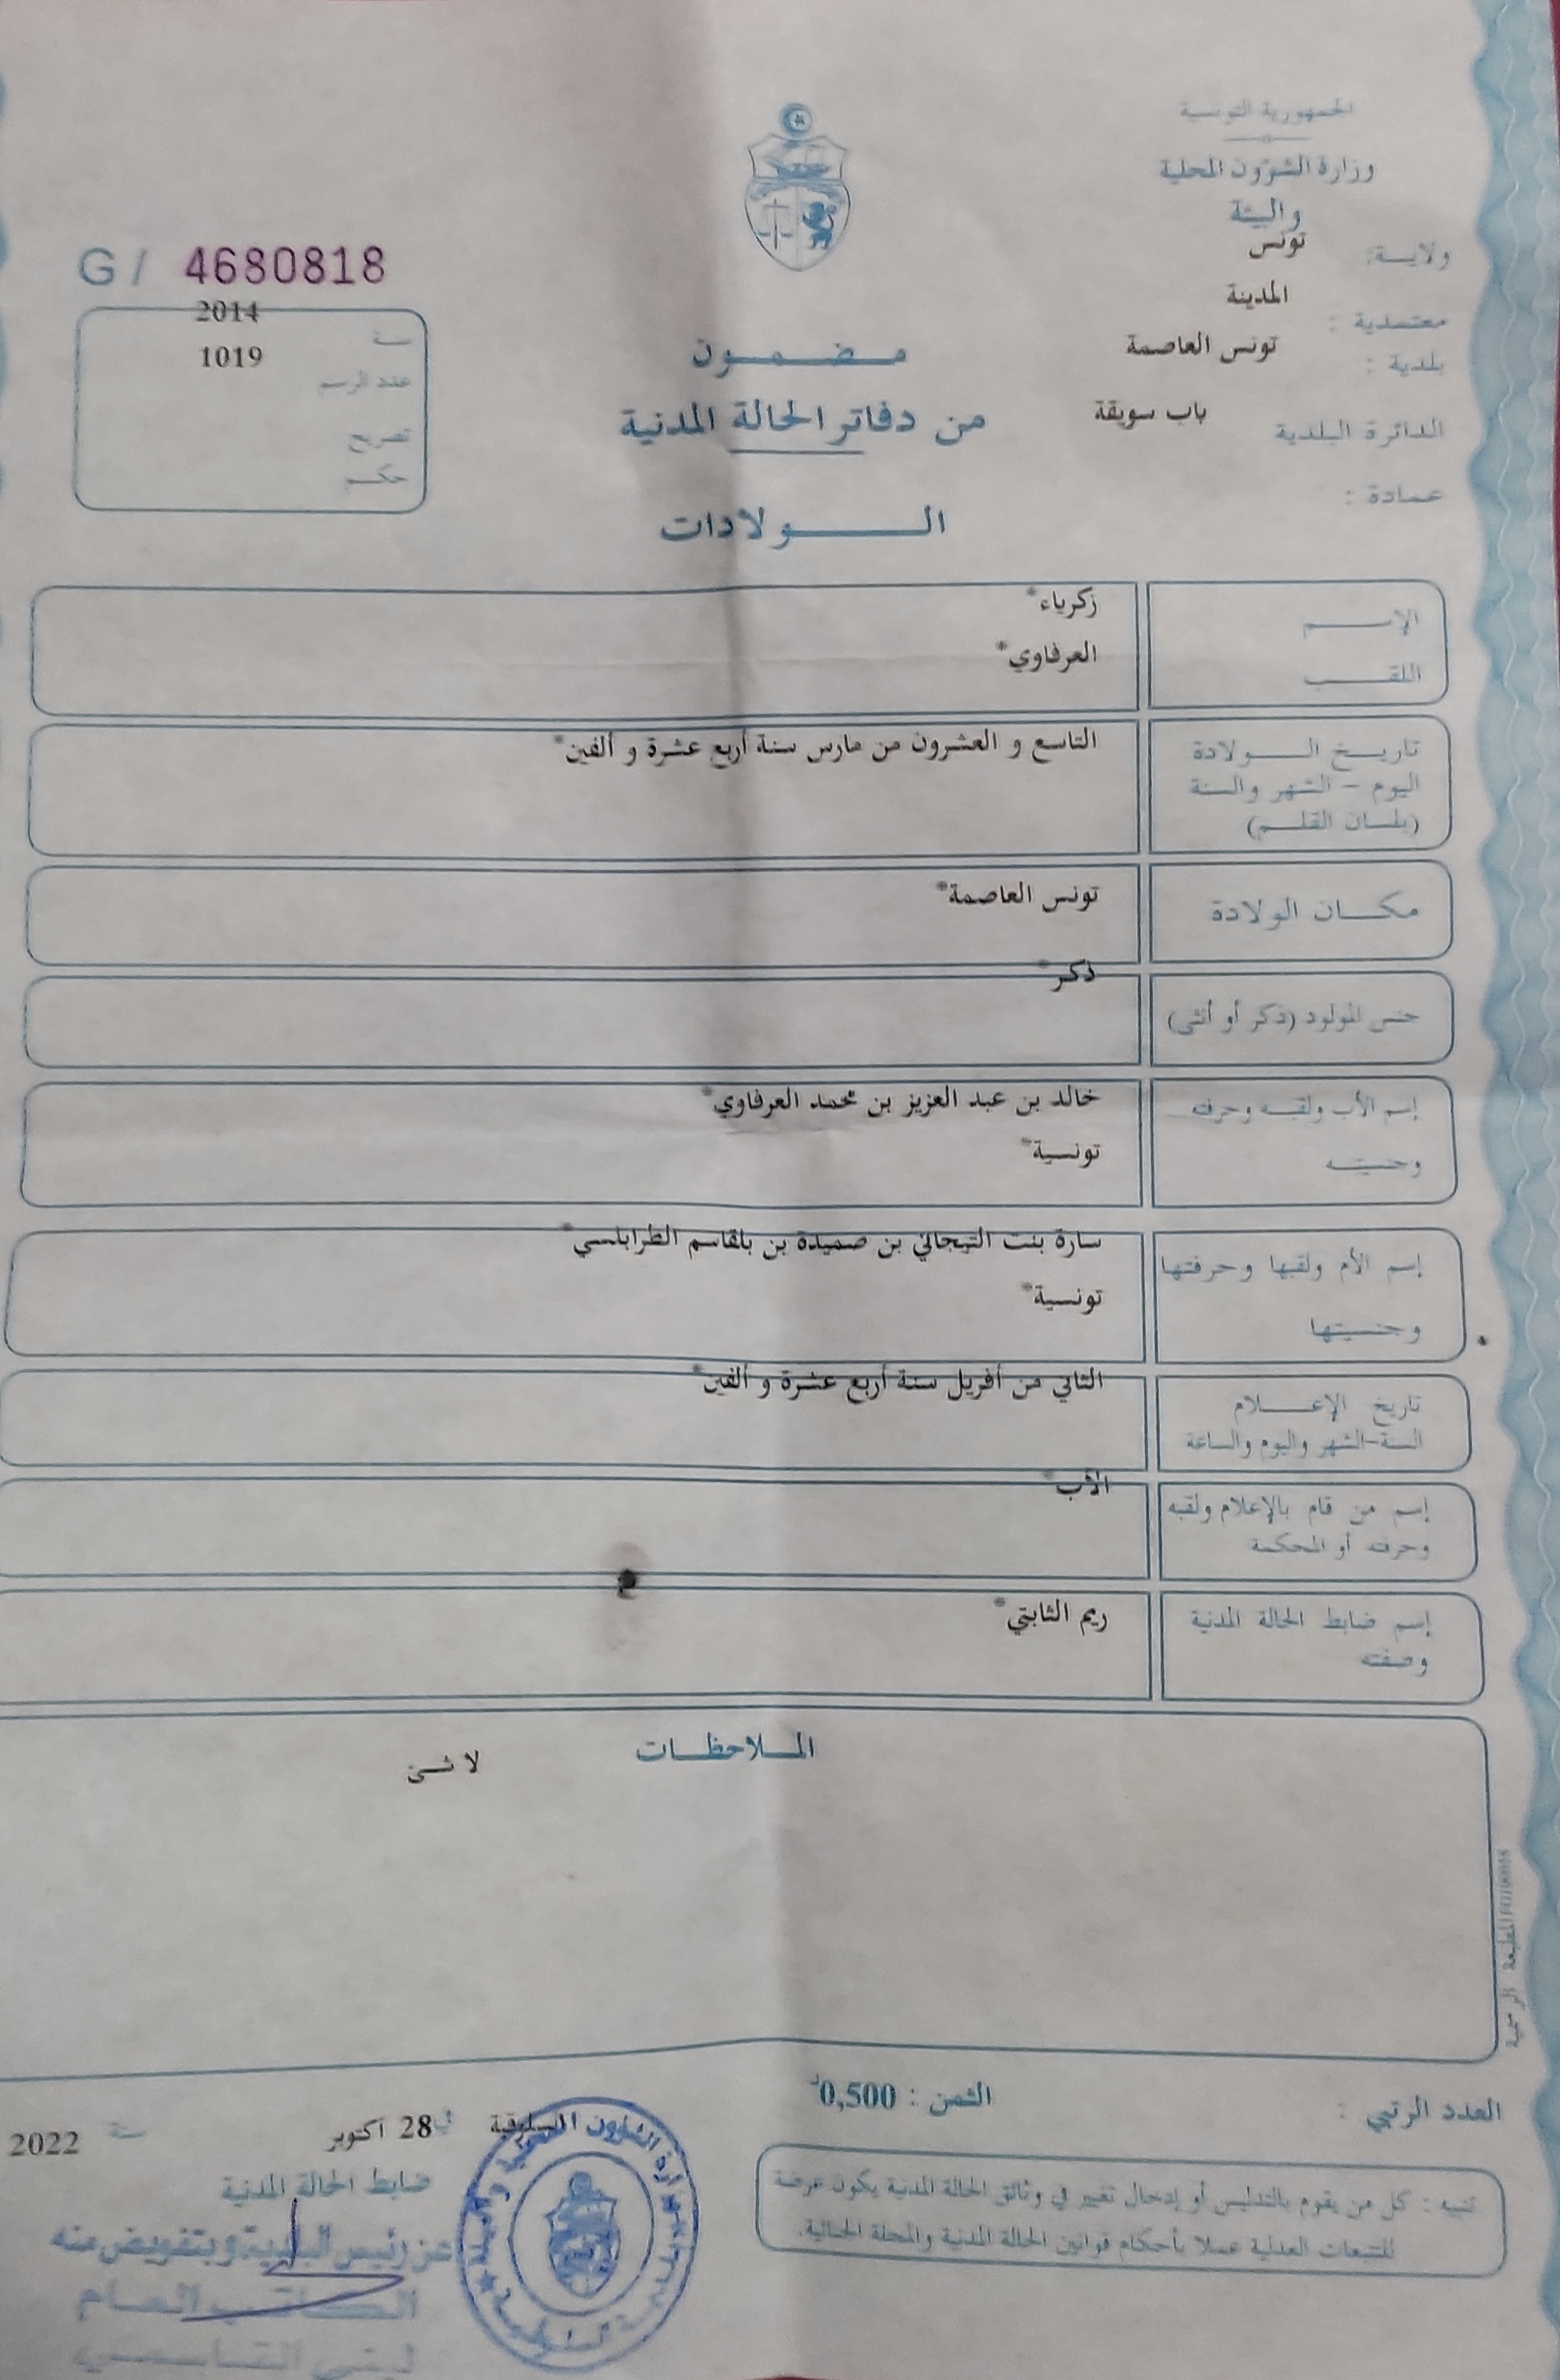 الجمهورية التونسية
وزارة الشؤون المحلية
والبيئة
ولاية: تونس
معتمدية : المدينة
بلدية : تونس العاصمة
الدائرة البلدية باب سويقة
عمادة :
G / 4680818
سنة 2014
عدد الرسم 1019
تصريح
حكم
مضمون
من دفاتر الحالة المدنية
الولادات
الإسم زكرياء*
اللقب العرفاوي*
تاريخ الولادة التاسع و العشرون من مارس سنة أربع عشرة و ألفين*
اليوم - الشهر والسنة
(بلسان القلم)
مكان الولادة تونس العاصمة*
جنس المولود (ذكر أو أنثى) ذكر*
إسم الأب ولقبه وحرفته خالد بن عبد العزيز بن محمد العرفاوي*
وجنسيته تونسية*
إسم الأم ولقبها وحرفتها سارة بنت التيجاني بن صميدة بن بلقاسم الطرابلسي*
وجنسيتها تونسية*
تاريخ الإعلام الثاني من أفريل سنة أربع عشرة و ألفين*
السنة-الشهر واليوم والساعة
إسم من قام بالإعلام ولقبه الأب*
وحرفته أو المحكمة
إسم ضابط الحالة المدنية ريم الثابتي*
وصفته
الملاحظات
لا شئ
المطبعة الرسمية
العدد الرتبي :
الثمن : 0,500د
السلوقية في 28 اكتوبر سنة 2022
ضابط الحالة المدنية
عن رئيس البلدية وبتفويض منه
الكاتب العام
تنبيه : كل من يقوم بالتدليس أو إدخال تغيير في وثائق الحالة المدنية يكون عرضة
للتتبعات العدلية عملا بأحكام قوانين الحالة المدنية والمجلة الجنائية.